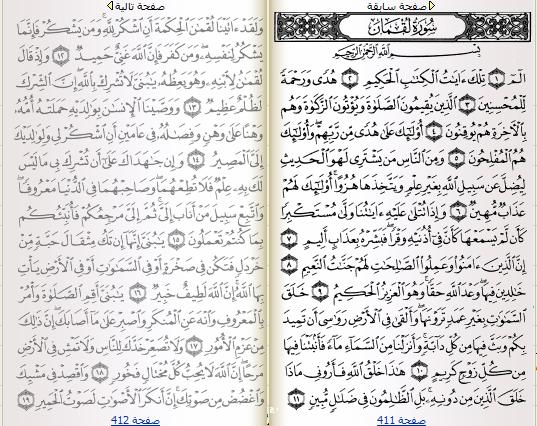 صفحة سابقة
سُورَةُ لُقْمَانَ
بِسْمِ ٱللَّهِ ٱلرَّحْمَٰنِ ٱلرَّحِيمِ
الٓمٓ ١ تِلْكَ ءَايَٰتُ ٱلْكِتَٰبِ ٱلْحَكِيمِ ٢ هُدًى وَرَحْمَةً
لِّلْمُحْسِنِينَ ٣ ٱلَّذِينَ يُقِيمُونَ ٱلصَّلَوٰةَ وَيُؤْتُونَ ٱلزَّكَوٰةَ وَهُم
بِٱلْأَخِرَةِ هُمْ يُوقِنُونَ ٤ أُو۟لَٰٓئِكَ عَلَىٰ هُدًى مِّن رَّبِّهِمْ وَأُو۟لَٰٓئِكَ
هُمُ ٱلْمُفْلِحُونَ ٥ وَمِنَ ٱلنَّاسِ مَن يَشْتَرِى لَهْوَ ٱلْحَدِيثِ
لِيُضِلَّ عَن سَبِيلِ ٱللَّهِ بِغَيْرِ عِلْمٍ وَيَتَّخِذَهَا هُزُوًا أُو۟لَٰٓئِكَ لَهُمْ
عَذَابٌ مُّهِينٌ ٦ وَإِذَا تُتْلَىٰ عَلَيْهِ ءَايَٰتُنَا وَلَّىٰ مُسْتَكْبِرًا
كَأَن لَّمْ يَسْمَعْهَا كَأَنَّ فِىٓ أُذُنَيْهِ وَقْرًا فَبَشِّرْهُ بِعَذَابٍ أَلِيمٍ ٧
إِنَّ ٱلَّذِينَ ءَامَنُوا۟ وَعَمِلُوا۟ ٱلصَّٰلِحَٰتِ لَهُمْ جَنَّٰتُ ٱلنَّعِيمِ ٨
خَٰلِدِينَ فِيهَا وَعْدَ ٱللَّهِ حَقًّا وَهُوَ ٱلْعَزِيزُ ٱلْحَكِيمُ ٩ خَلَقَ
ٱلسَّمَٰوَٰتِ بِغَيْرِ عَمَدٍ تَرَوْنَهَا وَأَلْقَىٰ فِى ٱلْأَرْضِ رَوَٰسِىَ أَن تَمِيدَ
بِكُمْ وَبَثَّ فِيهَا مِن كُلِّ دَآبَّةٍ وَأَنزَلْنَا مِنَ ٱلسَّمَآءِ مَآءً فَأَنۢبَتْنَا فِيهَا
مِن كُلِّ زَوْجٍ كَرِيمٍ ١٠ هَٰذَا خَلْقُ ٱللَّهِ فَأَرُونِى مَاذَا
خَلَقَ ٱلَّذِينَ مِن دُونِهِۦ بَلِ ٱلظَّٰلِمُونَ فِى ضَلَٰلٍ مُّبِينٍ ١١
صفحة 411
صفحة تالية
وَلَقَدْ ءَاتَيْنَا لُقْمَٰنَ ٱلْحِكْمَةَ أَنِ ٱشْكُرْ لِلَّهِ وَمَن يَشْكُرْ فَإِنَّمَا
يَشْكُرُ لِنَفْسِهِۦ وَمَن كَفَرَ فَإِنَّ ٱللَّهَ غَنِىٌّ حَمِيدٌ ١٢ وَإِذْ قَالَ
لُقْمَٰنُ لِٱبْنِهِۦ وَهُوَ يَعِظُهُۥ يَٰبُنَىَّ لَا تُشْرِكْ بِٱللَّهِ إِنَّ ٱلشِّرْكَ
لَظُلْمٌ عَظِيمٌ ١٣ وَوَصَّيْنَا ٱلْإِنسَٰنَ بِوَٰلِدَيْهِ حَمَلَتْهُ أُمُّهُۥ
وَهْنًا عَلَىٰ وَهْنٍ وَفِصَٰلُهُۥ فِى عَامَيْنِ أَنِ ٱشْكُرْ لِى وَلِوَٰلِدَيْكَ
إِلَىَّ ٱلْمَصِيرُ ١٤ وَإِن جَٰهَدَاكَ عَلَىٰٓ أَن تُشْرِكَ بِى مَا لَيْسَ
لَكَ بِهِۦ عِلْمٌ فَلَا تُطِعْهُمَا وَصَاحِبْهُمَا فِى ٱلدُّنْيَا مَعْرُوفًا
وَٱتَّبِعْ سَبِيلَ مَنْ أَنَابَ إِلَىَّ ثُمَّ إِلَىَّ مَرْجِعُكُمْ فَأُنَبِّئُكُم
بِمَا كُنتُمْ تَعْمَلُونَ ١٥ يَٰبُنَىَّ إِنَّهَآ إِن تَكُ مِثْقَالَ حَبَّةٍ مِّنْ
خَرْدَلٍ فَتَكُن فِى صَخْرَةٍ أَوْ فِى ٱلسَّمَٰوَٰتِ أَوْ فِى ٱلْأَرْضِ يَأْتِ
بِهَا ٱللَّهُ إِنَّ ٱللَّهَ لَطِيفٌ خَبِيرٌ ١٦ يَٰبُنَىَّ أَقِمِ ٱلصَّلَوٰةَ وَأْمُرْ
بِٱلْمَعْرُوفِ وَٱنْهَ عَنِ ٱلْمُنكَرِ وَٱصْبِرْ عَلَىٰ مَآ أَصَابَكَ إِنَّ ذَٰلِكَ
مِنْ عَزْمِ ٱلْأُمُورِ ١٧ وَلَا تُصَعِّرْ خَدَّكَ لِلنَّاسِ وَلَا تَمْشِ فِى ٱلْأَرْضِ
مَرَحًا إِنَّ ٱللَّهَ لَا يُحِبُّ كُلَّ مُخْتَالٍ فَخُورٍ ١٨ وَٱقْصِدْ فِى مَشْيِكَ
وَٱغْضُضْ مِن صَوْتِكَ إِنَّ أَنكَرَ ٱلْأَصْوَٰتِ لَصَوْتُ ٱلْحَمِيرِ ١٩
صفحة 412